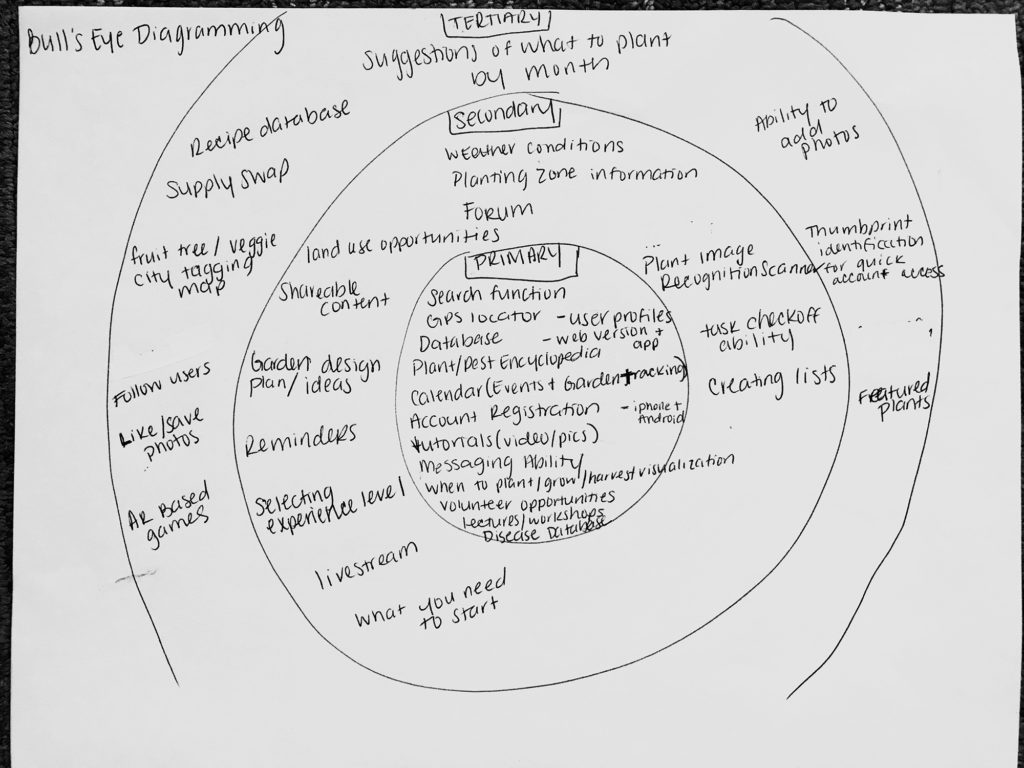 Bull's Eye Diagramming
TERTIARY
Suggestions of what to plant
by month
Recipe database
Supply Swap
fruit tree / veggie
city tagging
map
Follow users
Like/save
photos
AR Based
games
Ability to
add
photos
Thumbprint
identification
for quick
account access
Featured
plants
Secondary
Weather conditions
Planting Zone information
Forum
land use opportunities
Shareable
content
Garden design
plan/ideas
Reminders
Selecting
experience level
livestream
What you need
to start
Plant image
Recognition Scanner
task checkoff
ability
Creating lists
PRIMARY
Search function
GPS locator - user profiles
Database - web version +
app
Plant/Pest Encyclopedia
Calendar (Events + Garden tracking)
Account Registration - iphone +
Android
tutorials (video/pics)
Messaging Ability
when to plant/grow/harvest visualization
Volunteer opportunities
Lectures/workshops
Disease Database